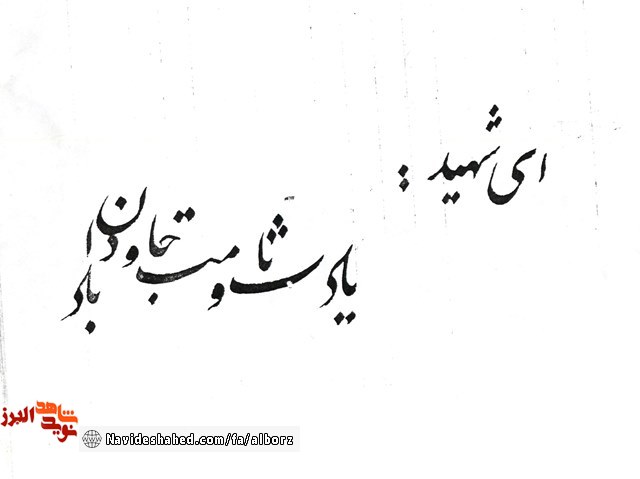 ای شهید :
یادت و نامت جاودان باد
نوید شاهد البرز
Navideshahed.com/fa/alborz